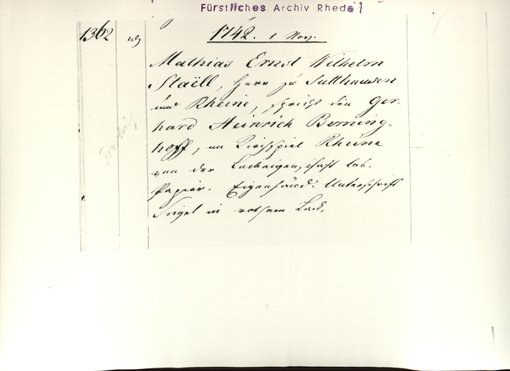 Fürstliches Archiv Rhede
1362
1742. 1 Nov.
Mathias Ernst Wilhelm
Staëll, Herr zu Sutthausen
und Rheine, den Ger-
hard Heinrich Berning-
hoff, im Kirchspiel Rheine
von der Leibeigenschaft los.
Papier. Eigenhänd. Unterschrift
Siegel in rothem Lack.